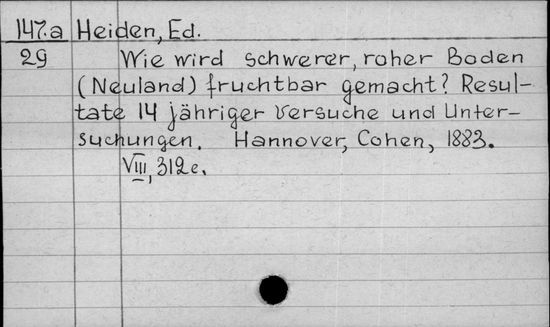 147.a Heiden, Ed.
29 Wie wird schwerer, roher Boden
(Neuland) fruchtbar gemacht? Resul-
tate 14 jähriger Versuche und Unter-
suchungen. Hannover, Cohen, 1883.
VIII, 312 e.